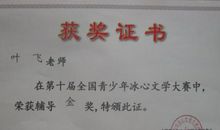 获奖证书
叶飞老师
在第十届全国青少年冰心文学大赛中,
荣获辅导金奖,特颁此证。